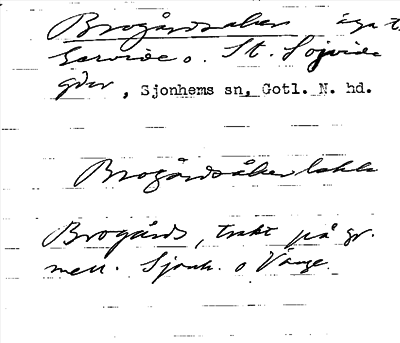 Brogårdsåker äga t.
Sarvide o. St. Sojvide
gdr, Sjonhems sn, Gotl. N. hd.
Brogårdsåker
Brogårds, trakt på gr.
mell. Sjonh. o Vänge.